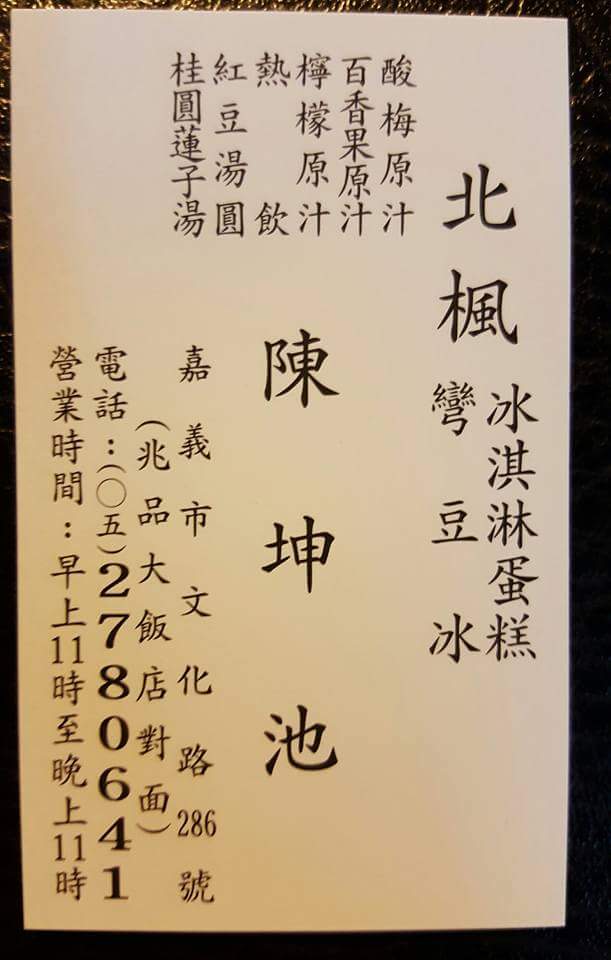 北楓
冰淇淋蛋糕
彎豆冰
酸梅原汁
百香果原汁
檸檬原汁
熱飲
紅豆湯圓
桂圓蓮子湯
陳坤池
嘉義市文化路286號
(兆品大飯店對面)
電話:(○五)2780641
營業時間:早上11時至晚上11時